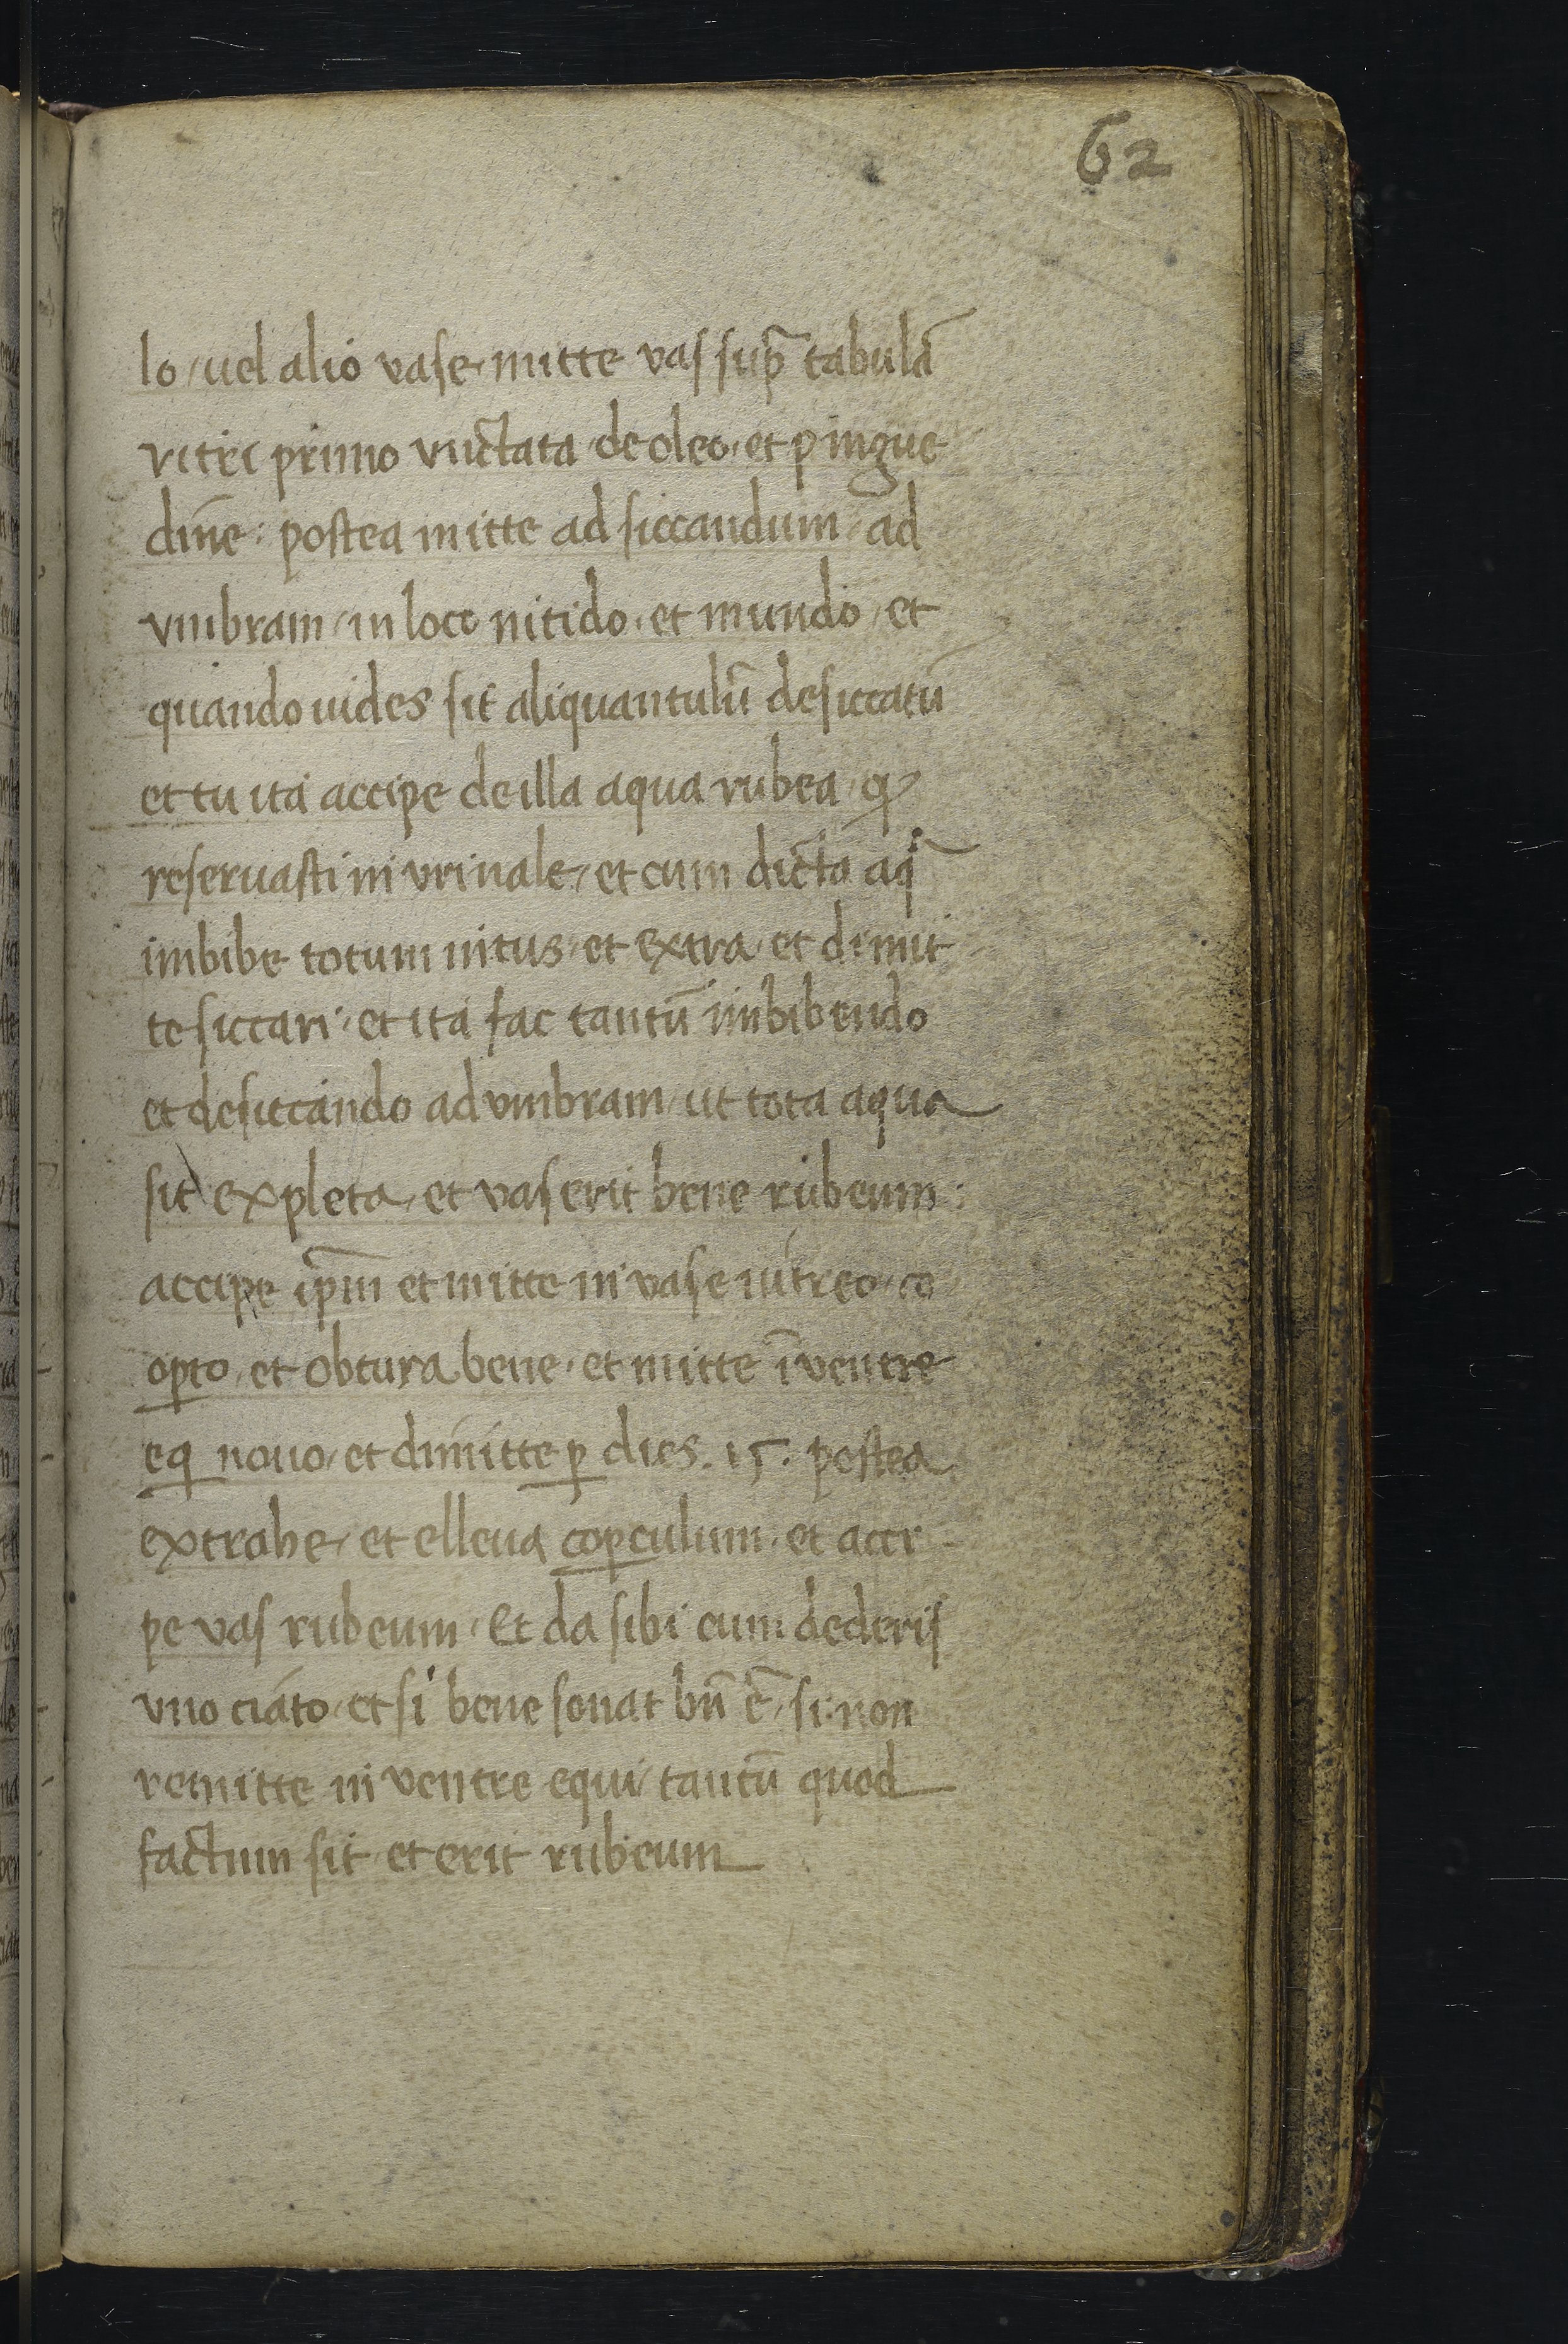 62
lo / uel alio vase / mitte vas sup̄ tabulā
vitri primo vnctata / de oleo / et pingue
dine : postea mitte ad siccandum / ad
vmbram / in loco nitido / et mundo / et
quando uides sit aliquantulū desiccatū
et tu ita accipe de illa aqua rubea /
reseruasti in vrinale / et cum dicta aq̄
imbibe totum intus / et extra / et dimit
te siccari / et ita fac tantū imbibendo
et desiccando ad vmbram / ut tota aqua
sit expleta / et vas erit bene rubeum :
accipe ip̄m et mitte in vase uitreo / co
oꝑto / et obtura bene / et mitte ī ventre
eq nouo / et dimitte ꝑ dies . 15 . postea
extrahe / et elleua coꝑculum / et acci-
pe vas rubeum / Et da sibi cum dederis
vno ciato / et si bene sonat bn̄ ē / si non
remitte in ventre equi / tantū quod
factum sit / et erit rubeum